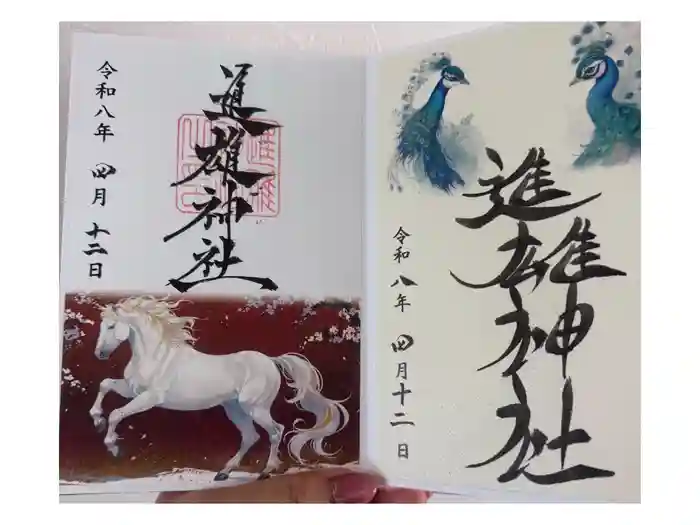 令和八年 四月十二日
進雄神社
進雄神社
令和八年 四月十二日